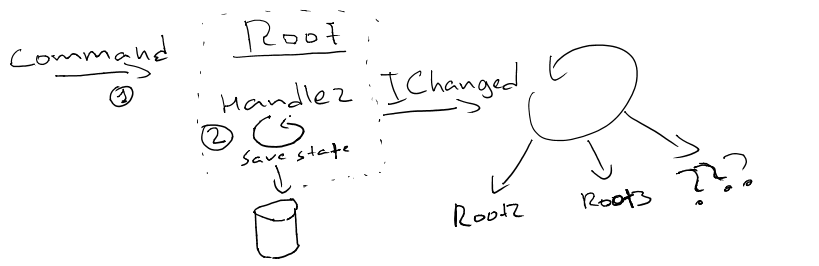 Command
1
Root
Handler
2
Save state
I Changed
Root2
Root3
???